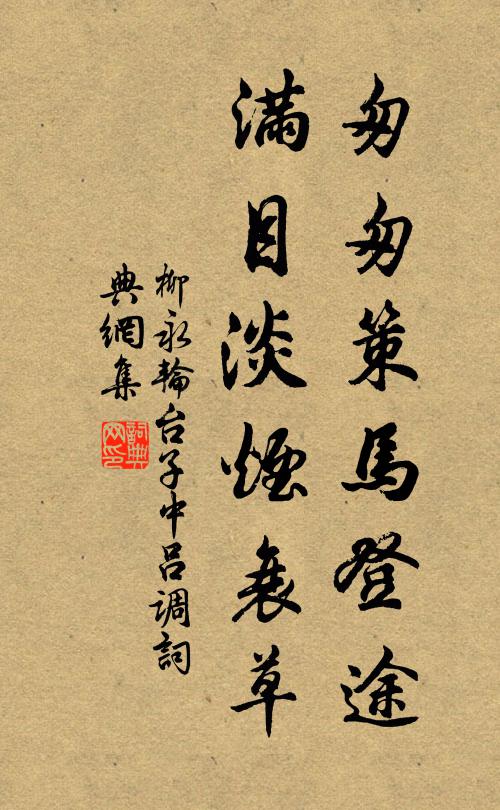 匆匆策馬登途
滿目淡煙衰草
柳永輪台子中呂調詞
典網集
詞典
网印